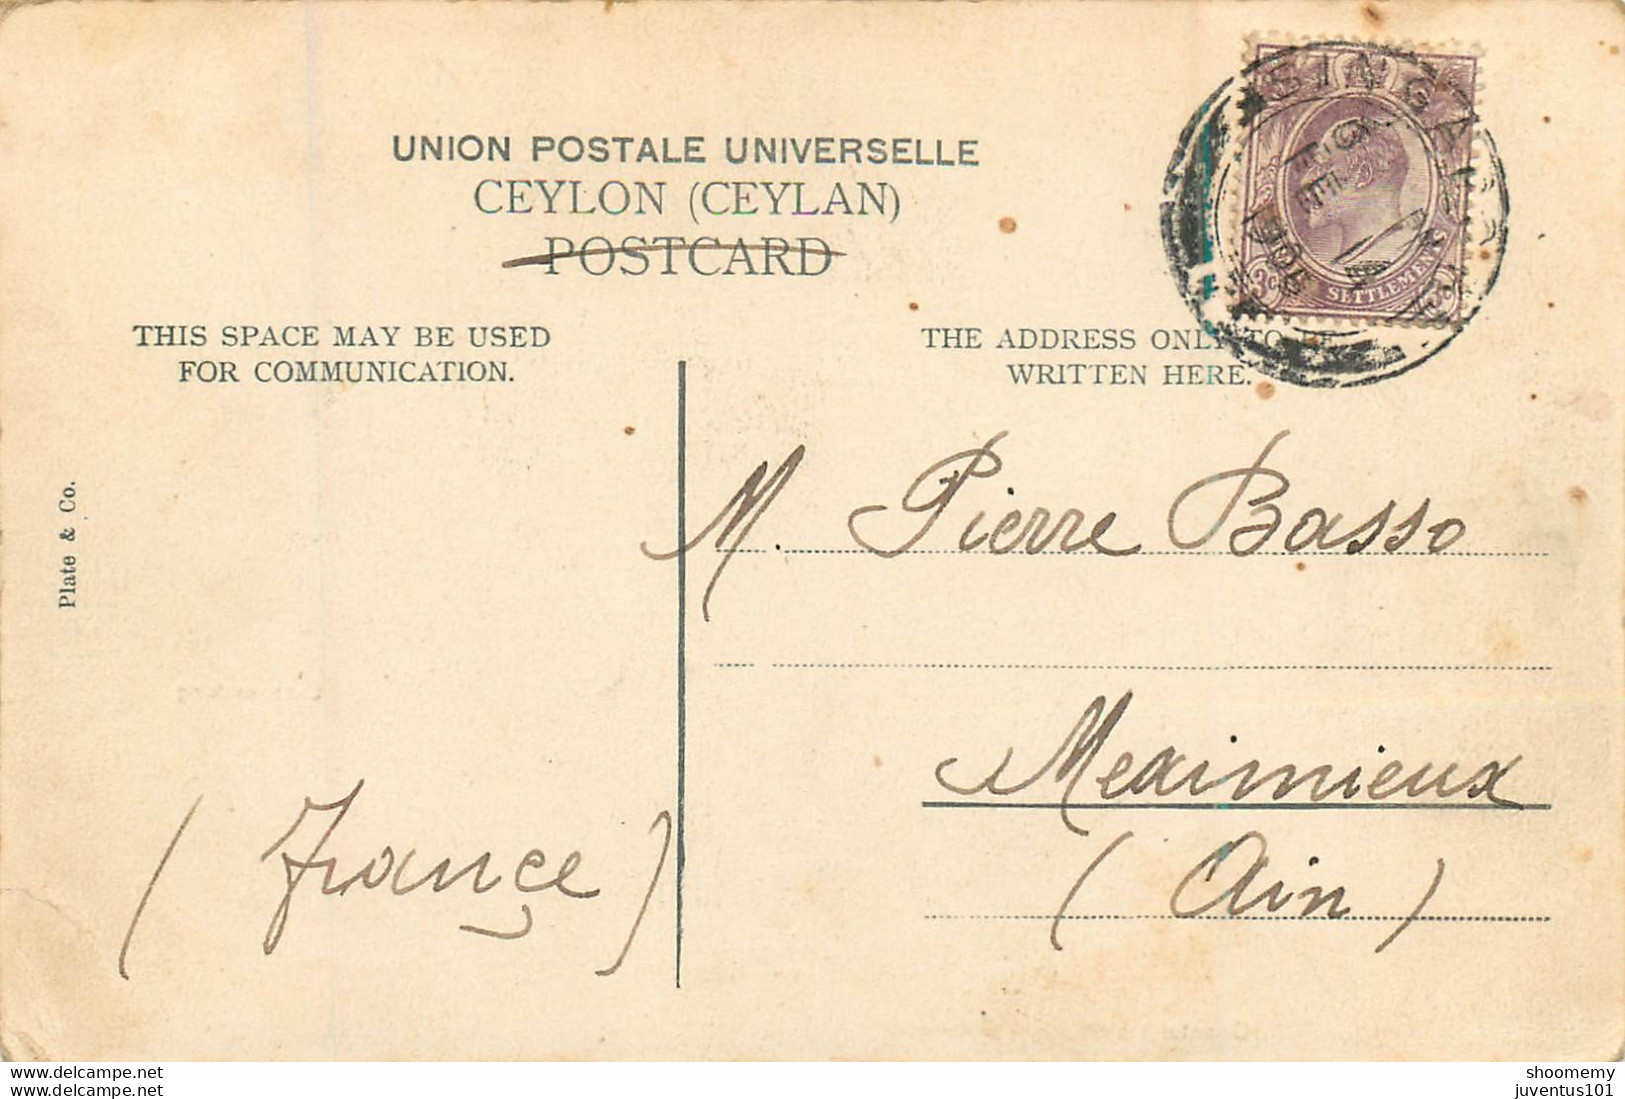 UNION POSTALE UNIVERSELLE
CEYLON (CEYLAN)
POSTCARD
THIS SPACE MAY BE USED
FOR COMMUNICATION.
THE ADDRESS ONLY TO BE
WRITTEN HERE.
SINGAPORE
SETTLEMENTS
3c
Plate & Co.
M. Pierre Basso
Meximieux
(Ain)
(France)
Delcampe.net
shoomemy
juventus101